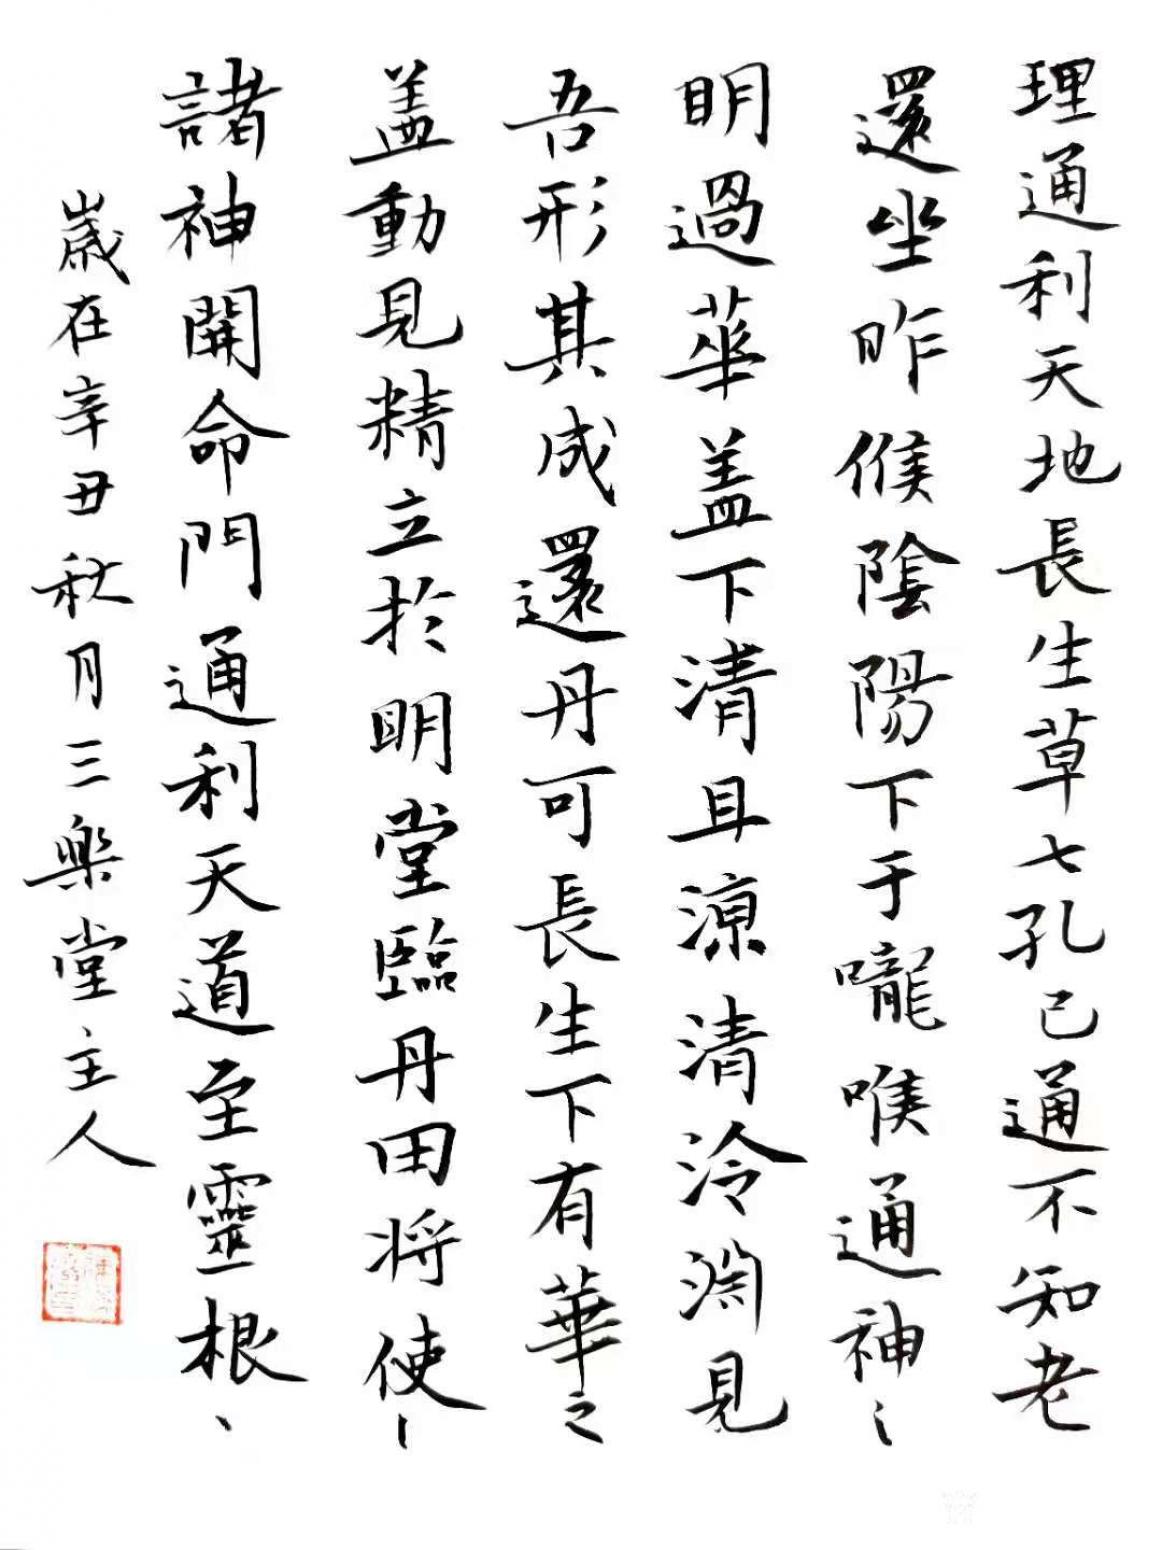 理通利天地長生草七孔已通不知老
還坐昨候陰陽下于嚨喉通神之
明過華盖下清且涼清泠淵見
吾形其成還丹可長生下有華之
盖動見精立於明堂臨丹田将使
諸神開命門通利天道至靈根
歲在辛丑秋月三樂堂主人